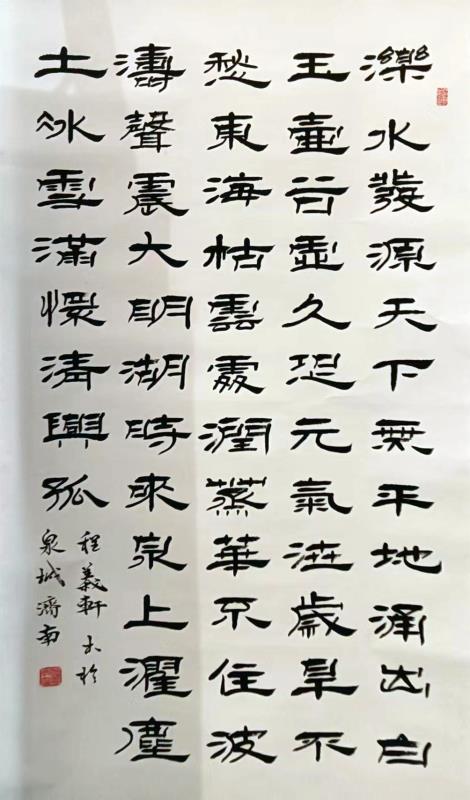 濼水發源天下無平地涌出白
玉壺谷虛久恐元氣泄歲旱不
愁東海枯雲霧潤蒸華不住波
濤聲震大明湖時來泉上濯塵
土冰雪滿懷清興孤
程義軒书於
泉城濟南